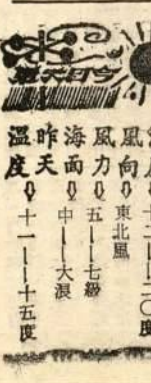 今日天氣
風向⇩東北風
風力⇩五——七級
海面⇩中——大浪
昨天
溫度⇩十一——十五度